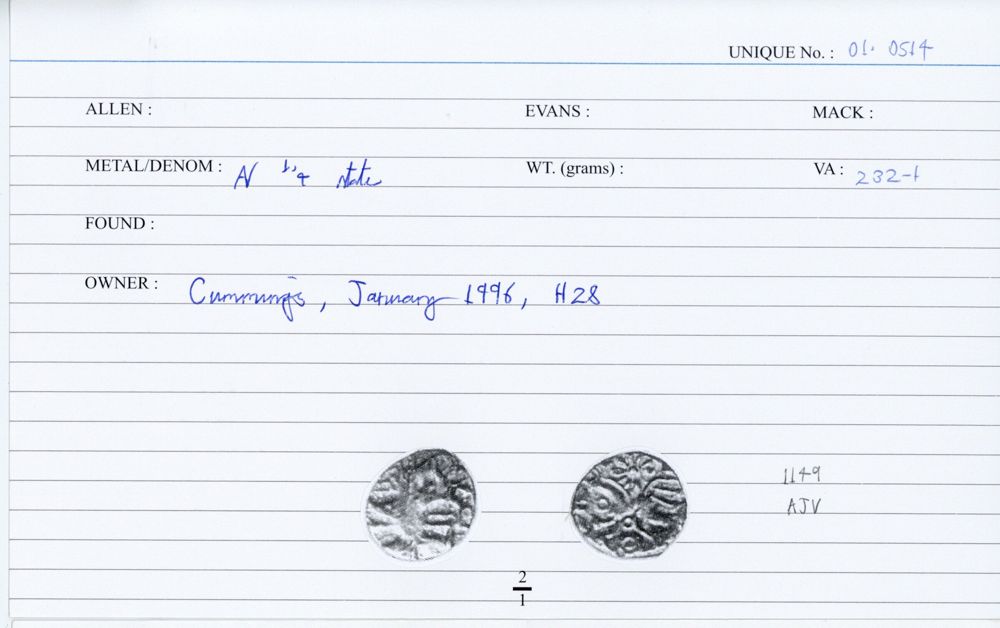 UNIQUE No. : 01. 0514
ALLEN : EVANS : MACK :
METAL/DENOM : AV 1/4 state WT. (grams) : VA : 232-1
FOUND :
OWNER : Cummings, January 1996, H28
1149
AJV
2
1